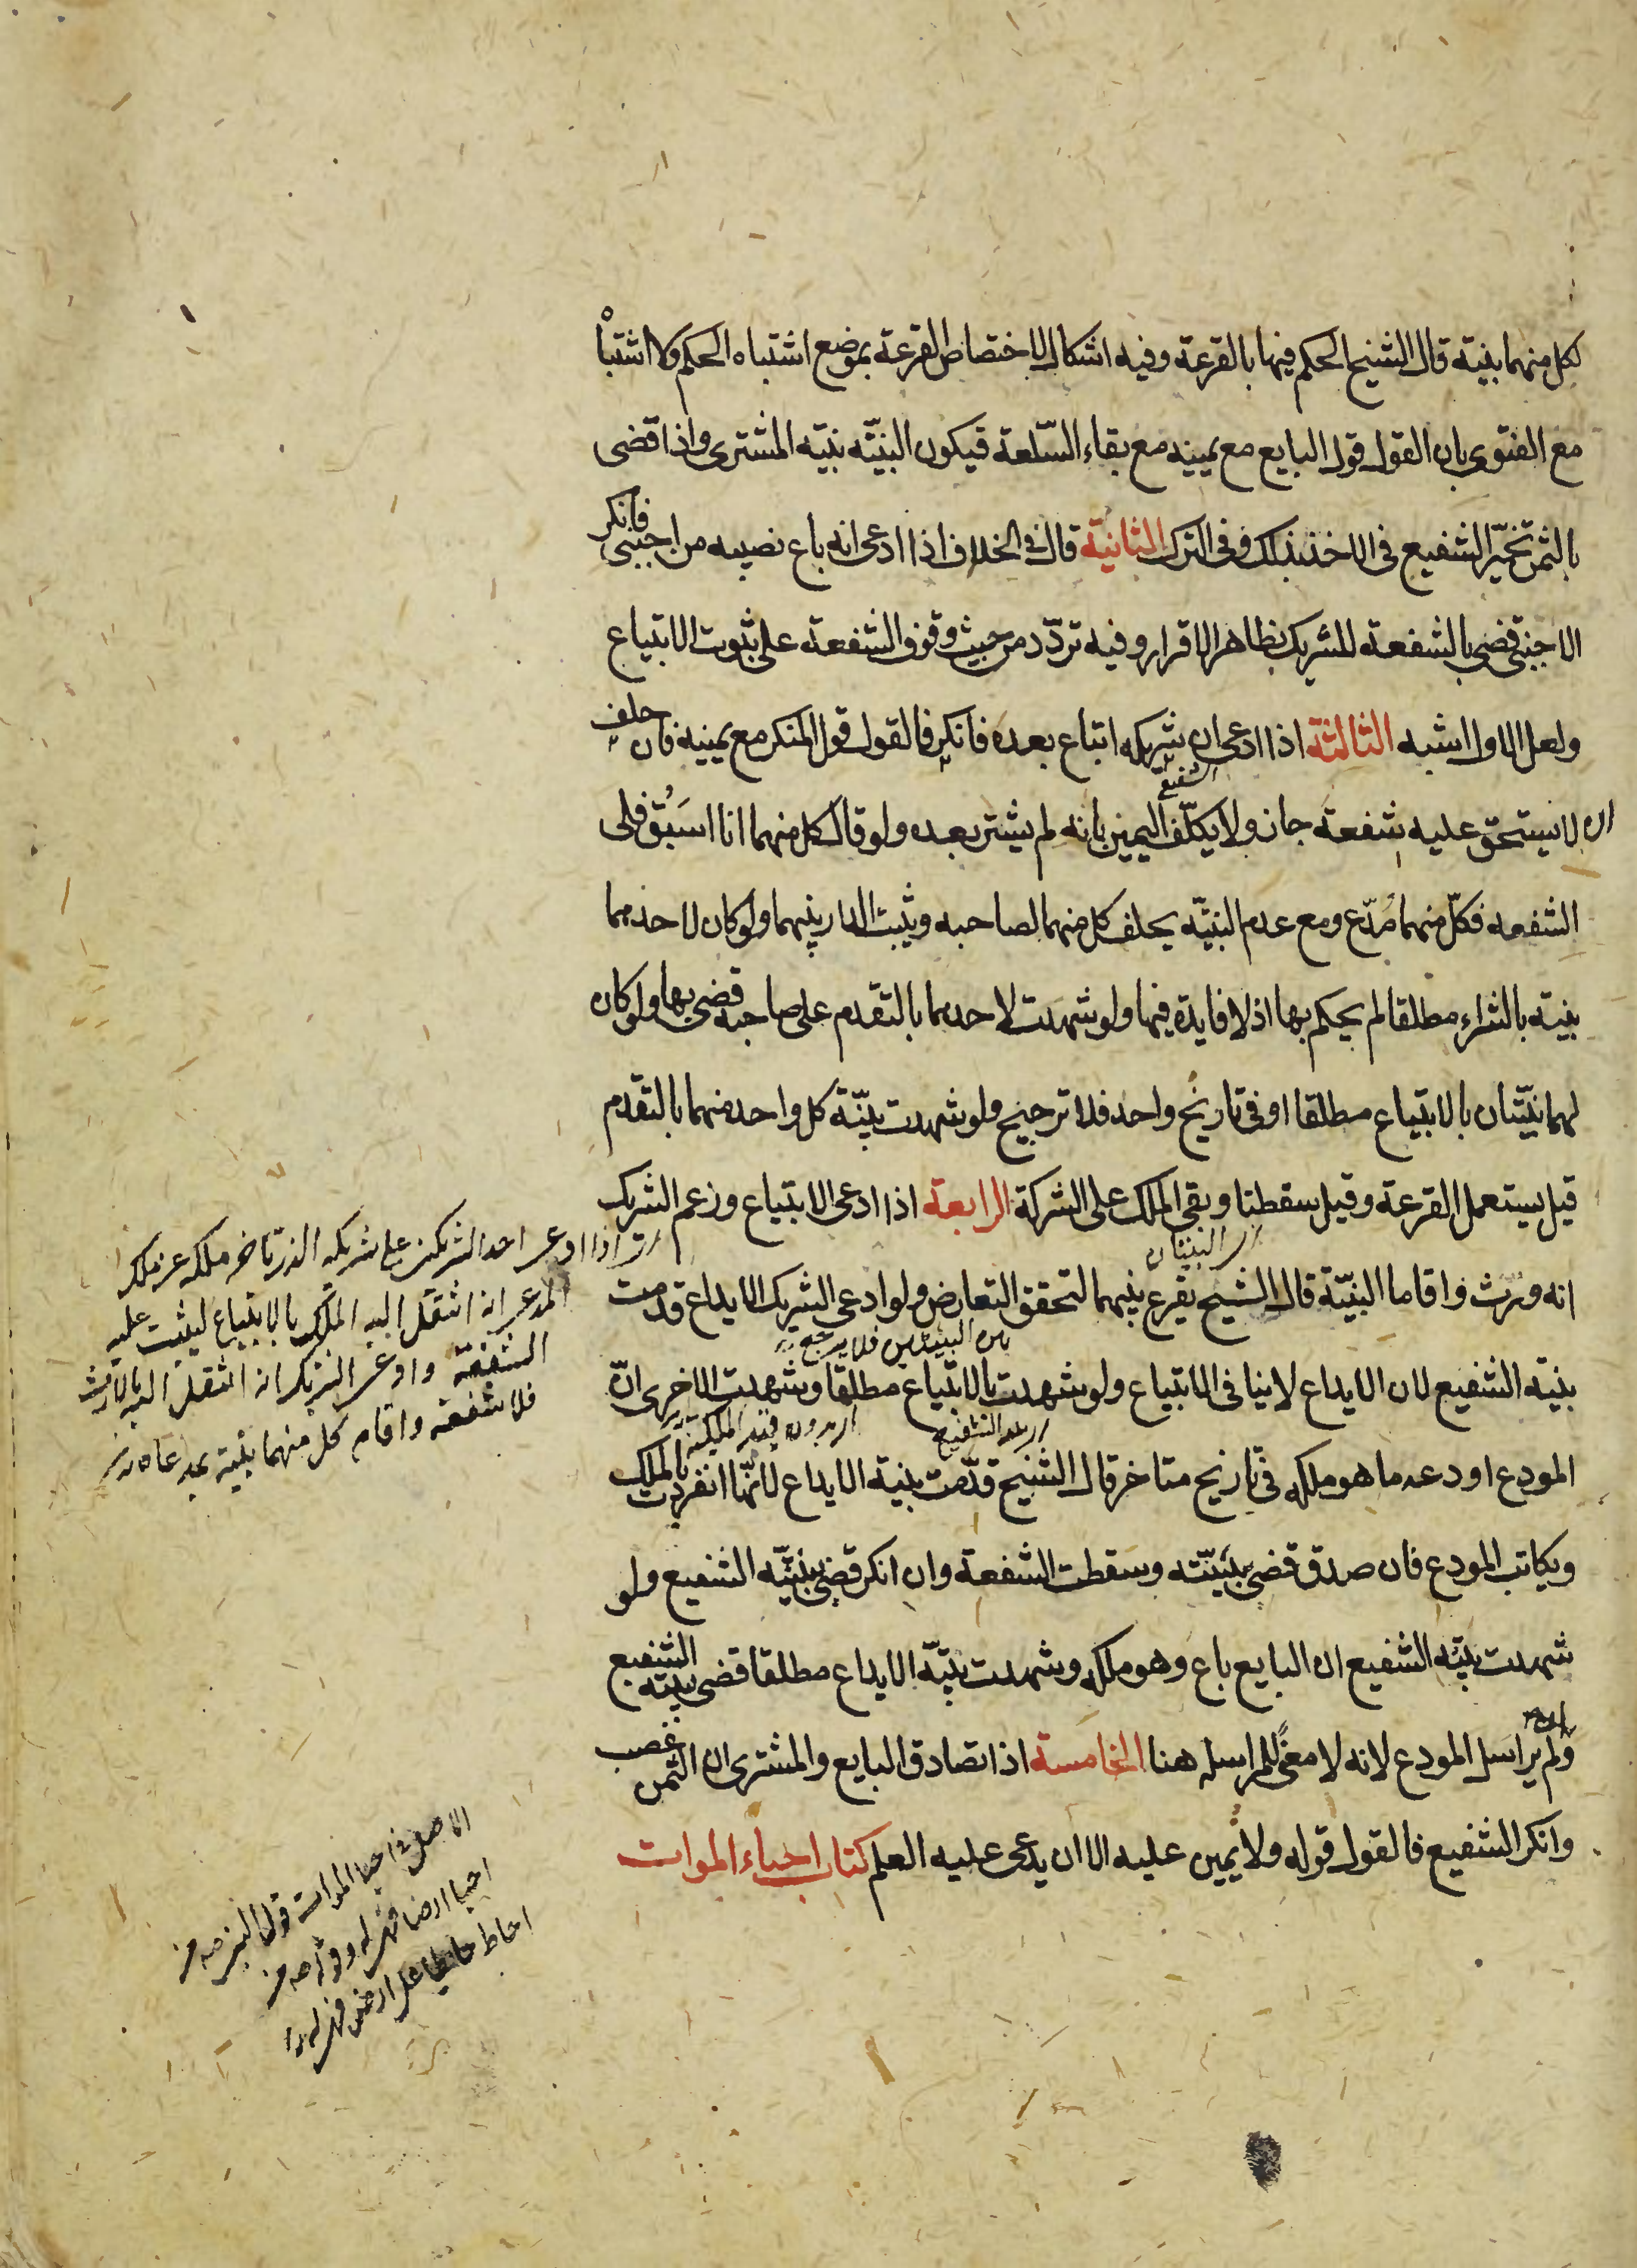 لكل منهما بينة قال الشيخ الحكم فيها بالقرعة وفيه اشكال لاختصاص القرعة بموضع اشتباه الحكم ولا اشتباه
مع الفتوى بان القول قول البايع مع يمينه مع بقاء السّلعة فيكون البيّنه بيّنه المشترى واذا قضى
بالثمن تخيّر الشفيع فى الاخذ بذلك وفى الترك الثانية قال فى الخلاف اذا ادعى انه باع نصيبه من اجنبى فانكر
الاجنبى قضى بالشفعة للشريك بظاهر الاقرار وفيه تردّد من حيث وقوف الشفعة على ثبوت الابتياع
ولعل الاول اشبه الثالثة اذا ادعى ان شريكه ابتاع بعده فانكر فالقول قول المنكر مع يمينه فان حلف
الشفيع
انه لا يستحق عليه شفعة جاز ولا يكلّف اليمين بانه لم يشتر بعده ولو قال كل منهما انا اسبَق فلى
الشفعه فكلّ منهما مُدّع ومع عدم البيّنه يحلف كل منهما لصاحبه ويثبت الدار بينهما ولو كان لاحدهما
بينه بالشراء مطلقا لم يحكم بها اذ لا فايدة فيها ولو شهدت لاحدهما بالتقدم على صاحبه قضى بها ولو كان
لهما بيّنتان بالابتياع مطلقا او فى تاريخ واحد فلا ترجيح ولو شهدت بيّنة كل واحد منهما بالتقدم
قيل يستعمل القرعة وقيل سقطتا وبقى الملك على الشركة الرابعة اذا ادعى الابتياع وزعم الشريك
اى البينتان
انه ورث واقاما البيّنة قال الشيخ يقرع بينهما لتحقق التعارض ولو ادعى الشريك الايداع قدمت
بين البينتين فلا يرجح
بينه الشفيع لان الايداع لا ينافى الابتياع ولو شهدت بالابتياع مطلقا وشهدت الاخرى انّ
اى بدون قيد الملكية
المودع اودعه ما هو ملكه فى تاريخ متاخر قال الشيخ قدّمت بينه الايداع لانّها انفردت بالملك
ويكاتب المودع فان صدق قضى ببيّنته وسقطت الشفعة وان انكر قضى ببيّنه الشفيع ولو
شهدت بيّنه الشفيع ان البايع باع وهو ملكه وشهدت بيّنه الايداع مطلقا قضى ببينه الشفيع
ولم يراسل المودع لانه لا معنىً للمراسله هنا الخامسة اذا تصادق البايع والمشترى ان الثمن غصب
وانكر الشفيع فالقول قوله ولا يمين عليه الا ان يدعى عليه العلم كتاب احياء الموات
اذا ادعى احد الشريكين على شريكه الذى تاخر ملكه عن ملك
المدعى انه انتقل اليه الملك بالابتياع ليثبت عليه
الشفعة وادعى الشريك انه انتقل اليه بالارث
فلا شفعة واقام كل منهما بينة بمدعاه
الاصل فى احيا الموات قول النبى صه من
احيا ارضا فهى له وقوله صه من
احاط حايطا على ارض فهى له